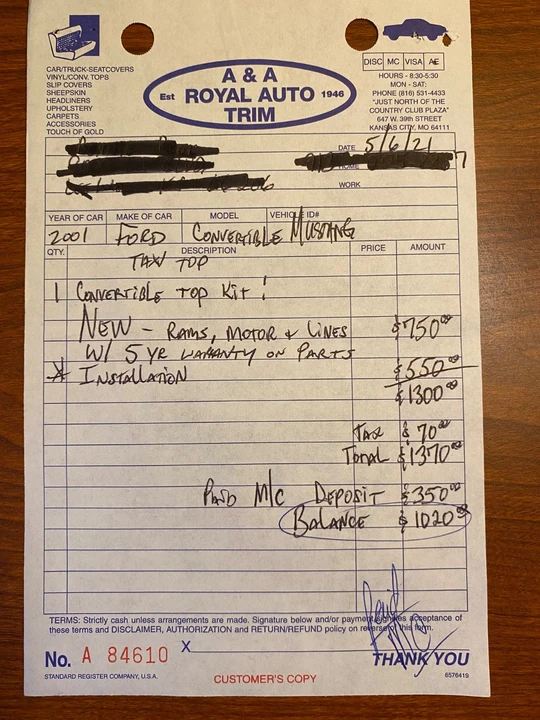 CAR/TRUCK-SEATCOVERS
VINYL/CONV. TOPS
SLIP COVERS
SHEEPSKIN
HEADLINERS
UPHOLSTERY
CARPETS
ACCESSORIES
TOUCH OF GOLD
A & A
Est ROYAL AUTO 1946
TRIM
DISC MC VISA AE
HOURS - 8:30-5:30
MON - SAT:
PHONE (816) 531-4433
"JUST NORTH OF THE
COUNTRY CLUB PLAZA"
647 W. 39th STREET
KANSAS CITY, MO 64111
DATE 5/6/21
WORK
YEAR OF CAR MAKE OF CAR MODEL VEHICLE ID#
2001 FORD CONVERTIBLE MUSTANG
QTY. DESCRIPTION PRICE AMOUNT
TAN TOP
1 CONVERTIBLE TOP KIT!
NEW - RAMS, MOTOR & LINES $750.00
W/ 5 YR WARRANTY ON PARTS
INSTALLATION $550.00
$1300.00
TAX $70.00
TOTAL $1370.00
PAID M/C DEPOSIT $350.00
BALANCE $1020.00
TERMS: Strictly cash unless arrangements are made. Signature below and/or payment signifies acceptance of
these terms and DISCLAIMER, AUTHORIZATION and RETURN/REFUND policy on reverse of this form.
No. A 84610 X
THANK YOU
STANDARD REGISTER COMPANY, U.S.A. CUSTOMER'S COPY 6576419